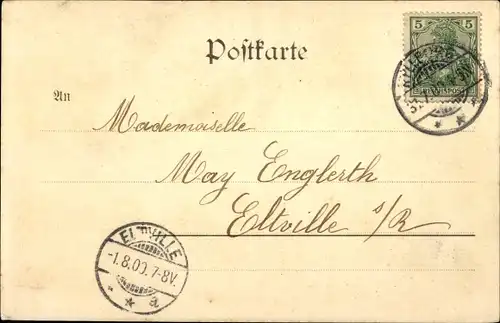 5 5
REICHSPOST
Postkarte
An
Mademoiselle
May Englerth
Eltville s/R
ELTVILLE
-1.8.00.7-8V.
* * a